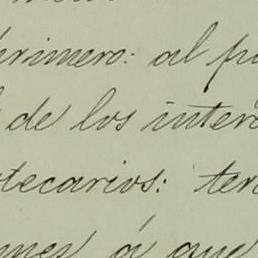 primero: al pa
de los inter
tecarios: ter
á que